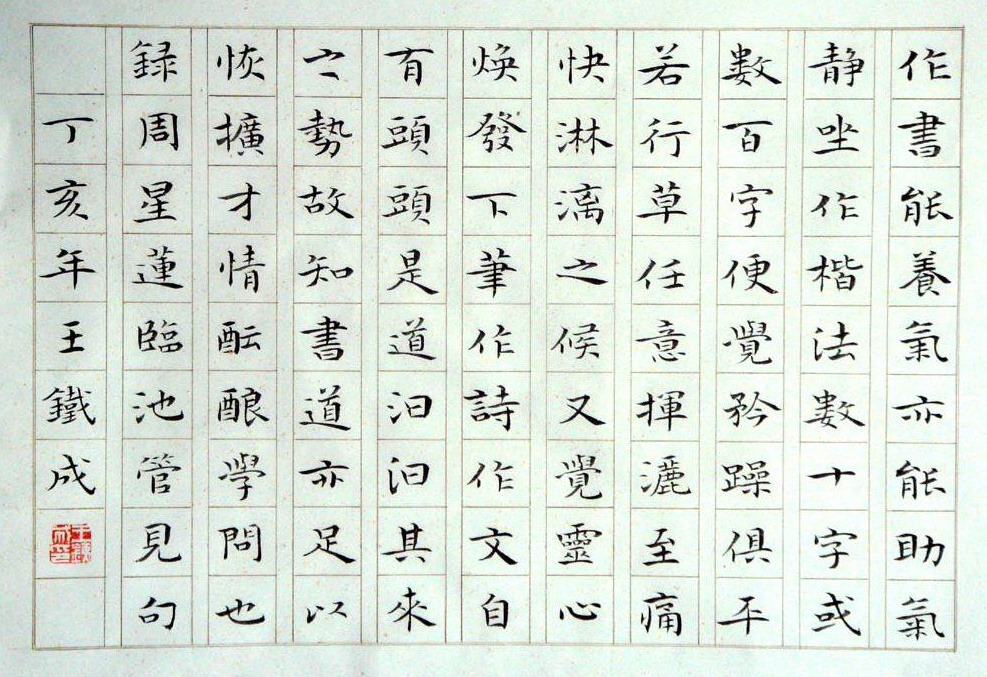 作書能養氣亦能助氣
静坐作楷法數十字或
數百字便覺矜躁俱平
若行草任意揮灑至痛
快淋漓之候又覺靈心
焕發下筆作詩作文自
有頭頭是道汩汩其來
之勢故知書道亦足以
恢擴才情酝酿學問也
録周星蓮臨池管見句
丁亥年王鐵成